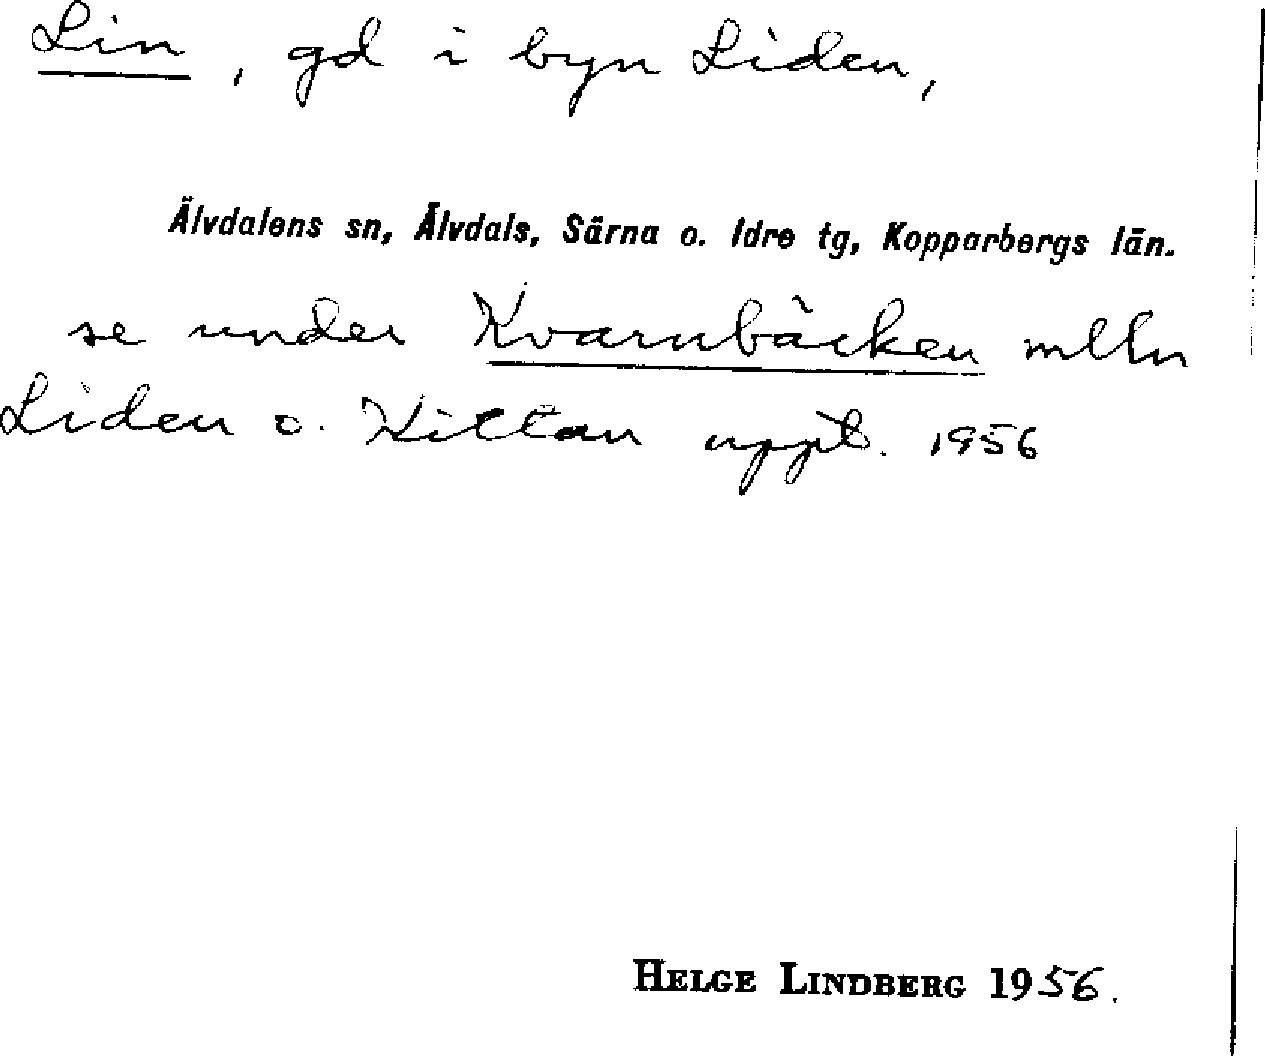 Lin, gd i byn Liden,
Älvdalens sn, Älvdals, Särna o. Idre tg, Kopparbergs län.
se under Kvarnbäcken mlln
Liden o. Kittan uppt. 1956
HELGE LINDBERG 1956.